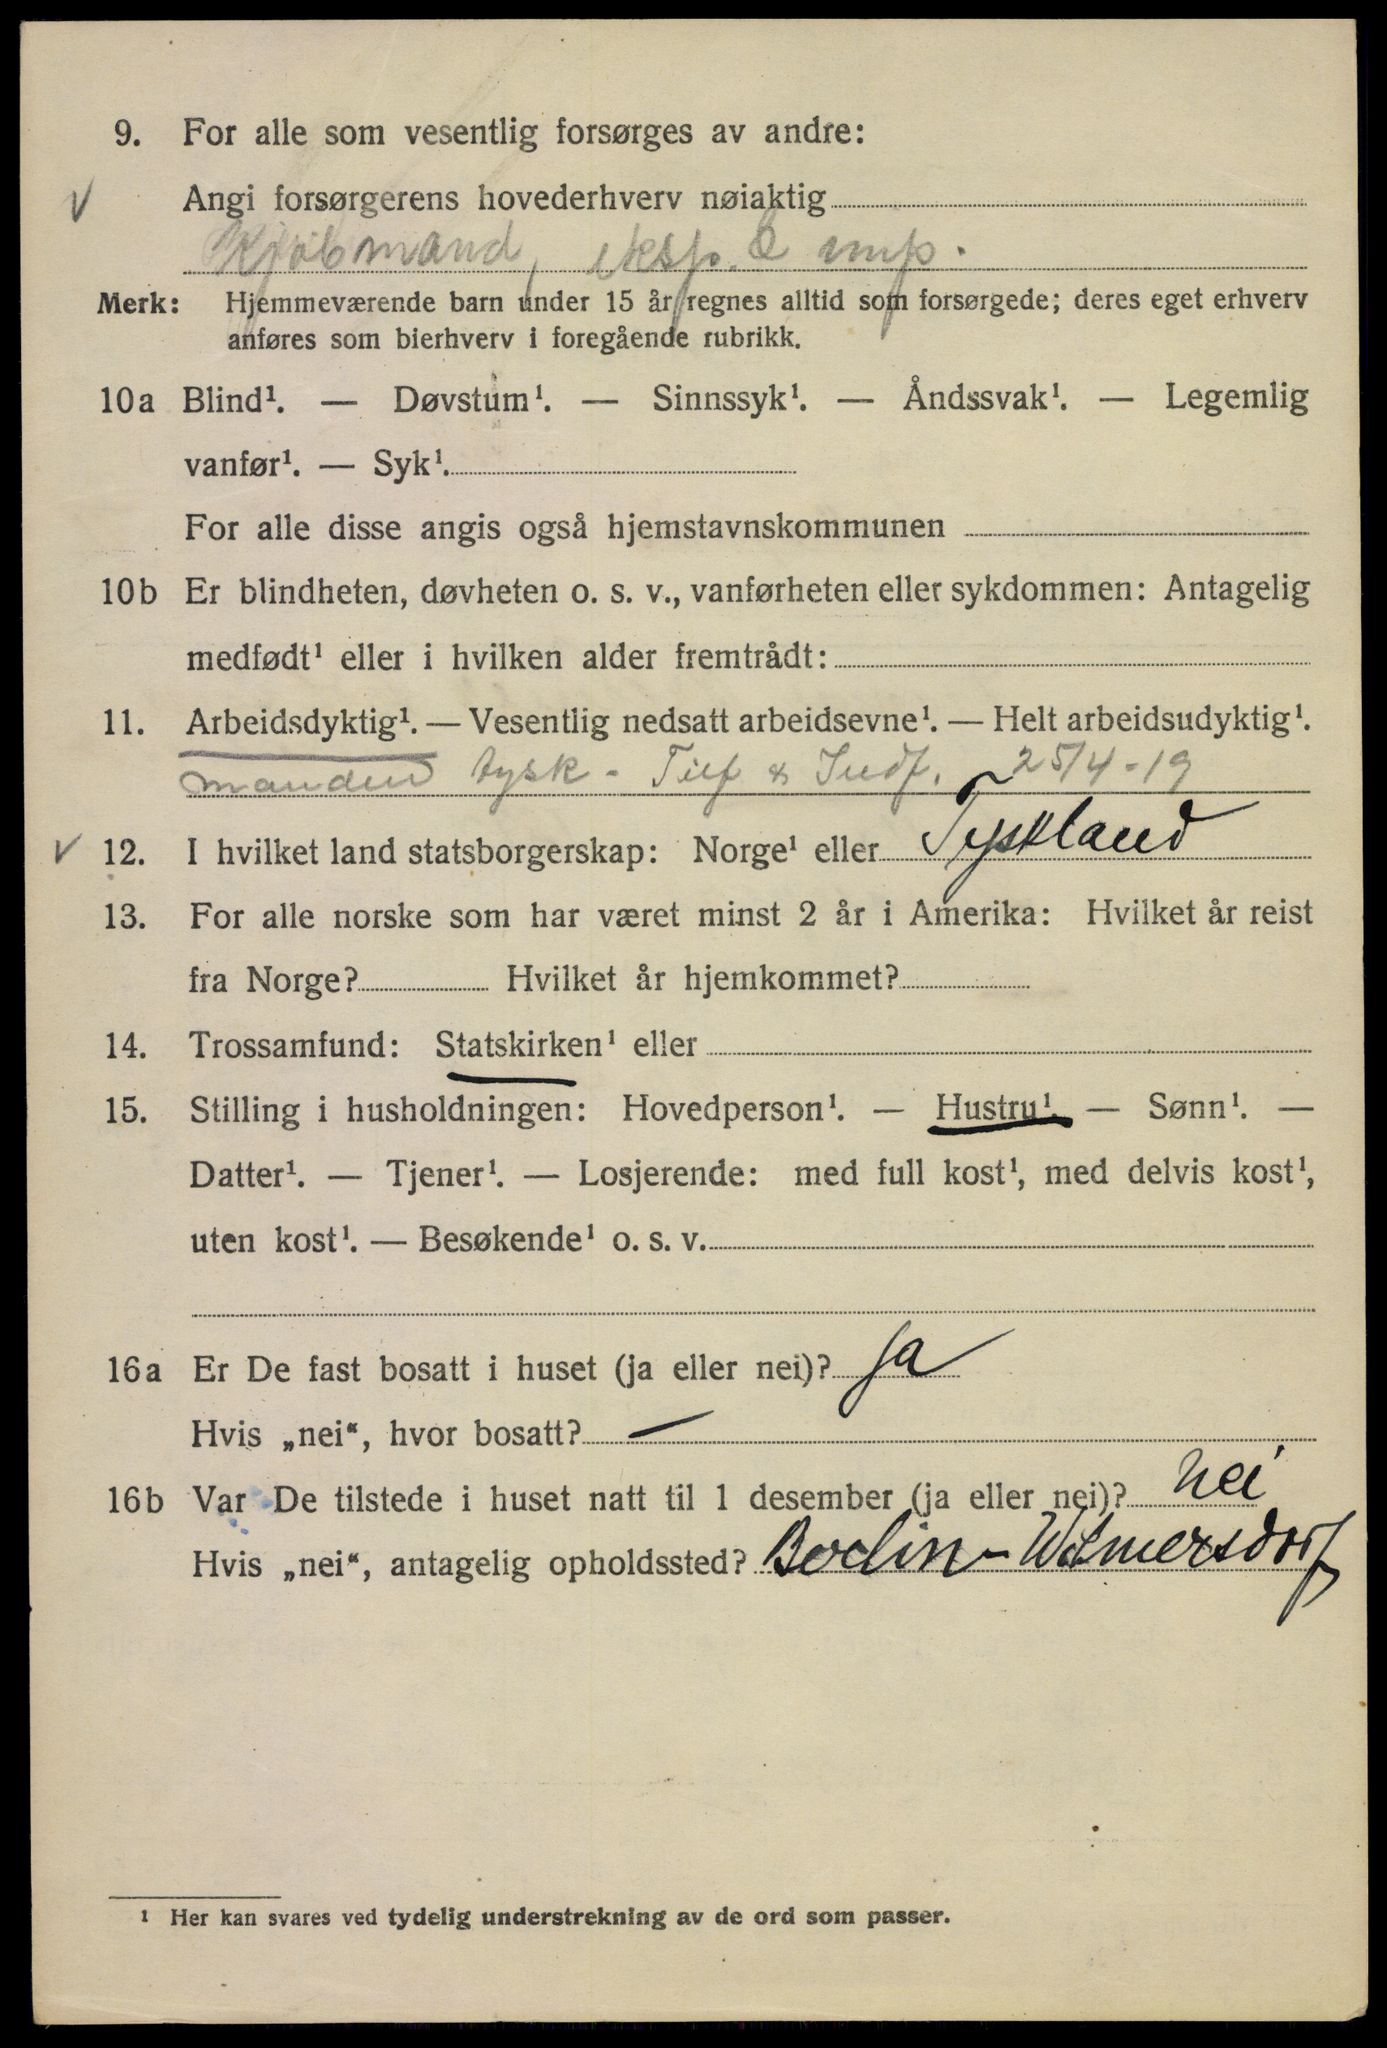 9. For alle som vesentlig forsørges av andre:
V Angi forsørgerens hovederhverv nøiaktig
Kjøbmand, eksp. & imp.
Merk: Hjemmeværende barn under 15 år regnes alltid som forsørgede; deres eget erhverv
anføres som bierhverv i foregående rubrikk.
10a Blind¹. — Døvstum¹. — Sinnssyk¹. — Åndssvak¹. — Legemlig
vanfør¹. — Syk¹.
For alle disse angis også hjemstavnskommunen
10b Er blindheten, døvheten o. s. v., vanførheten eller sykdommen: Antagelig
medfødt¹ eller i hvilken alder fremtrådt:
11. Arbeidsdyktig¹. — Vesentlig nedsatt arbeidsevne¹. — Helt arbeidsudyktig¹.
manden tysk - & 25/4-19
V 12. I hvilket land statsborgerskap: Norge¹ eller Tyskland
13. For alle norske som har været minst 2 år i Amerika: Hvilket år reist
fra Norge? Hvilket år hjemkommet?
14. Trossamfund: Statskirken¹ eller
15. Stilling i husholdningen: Hovedperson¹. — Hustru¹. — Sønn¹. —
Datter¹. — Tjener¹. — Losjerende: med full kost¹, med delvis kost¹,
uten kost¹. — Besøkende¹ o. s. v.
16a Er De fast bosatt i huset (ja eller nei)? ja
Hvis „nei“, hvor bosatt? —
16b Var De tilstede i huset natt til 1 desember (ja eller nei)? nei
Hvis „nei“, antagelig opholdssted? Berlin-Wilmersdorf
¹ Her kan svares ved tydelig understrekning av de ord som passer.